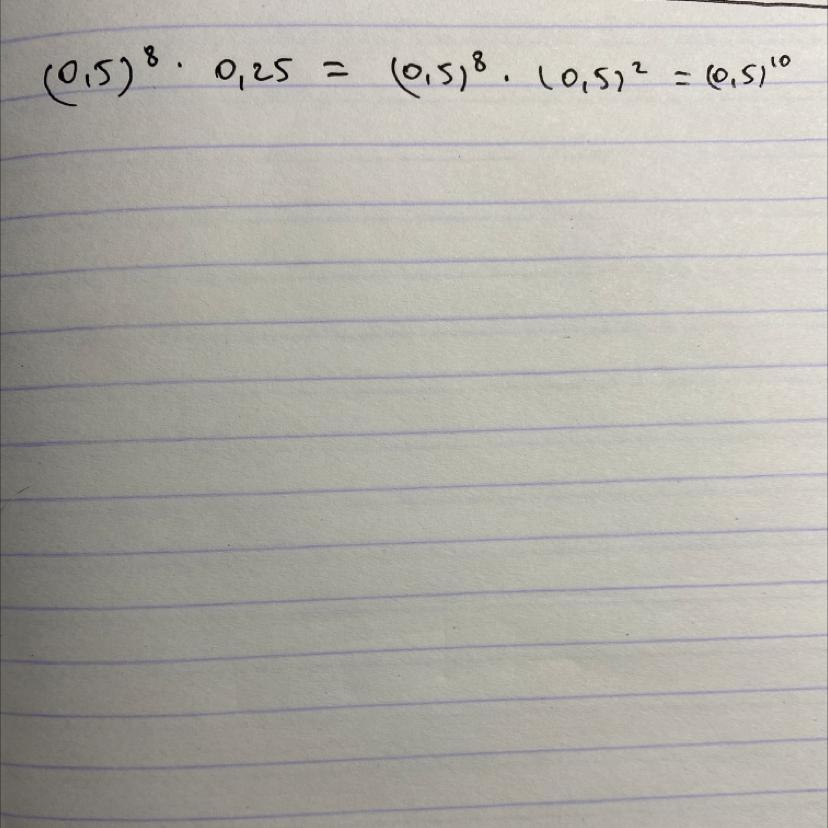 (0,5)⁸ · 0,25 = (0,5)⁸ · (0,5)² = (0,5)¹⁰